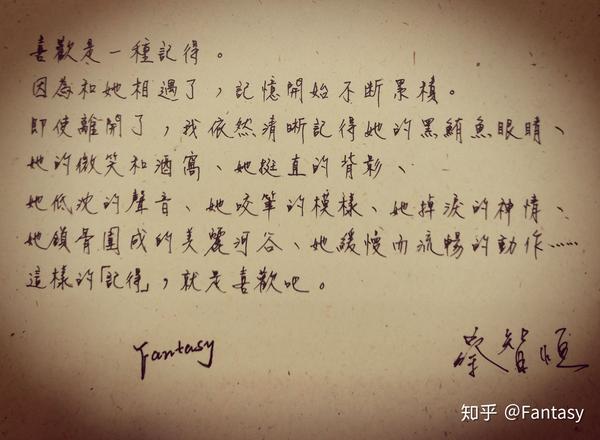 喜歡是一種記得。
因為和她相遇了，記憶開始不断累積。
即使離開了，我依然清晰記得她的黑鮪魚眼睛、
她的微笑和酒窩、她挺直的背影、
她低沈的聲音、她咬筆的模樣、她掉淚的神情、
她鎖骨圍成的美麗河谷、她緩慢而流暢的動作……
這樣的「記得」，就是喜歡吧。
Fantasy
蔡智恒
知乎 @Fantasy